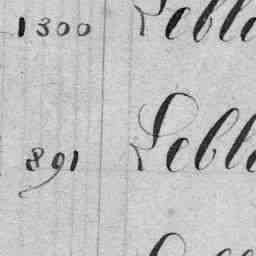 1300 Lebl
891 Lebl